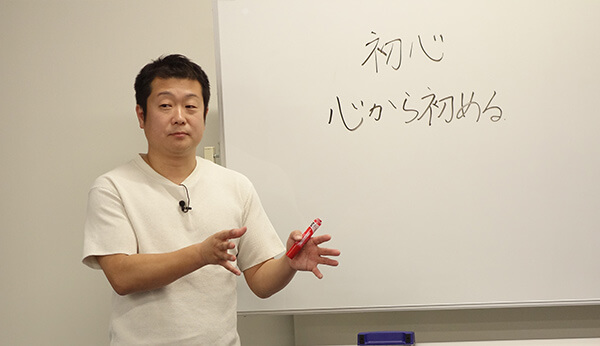 初心
心から初める